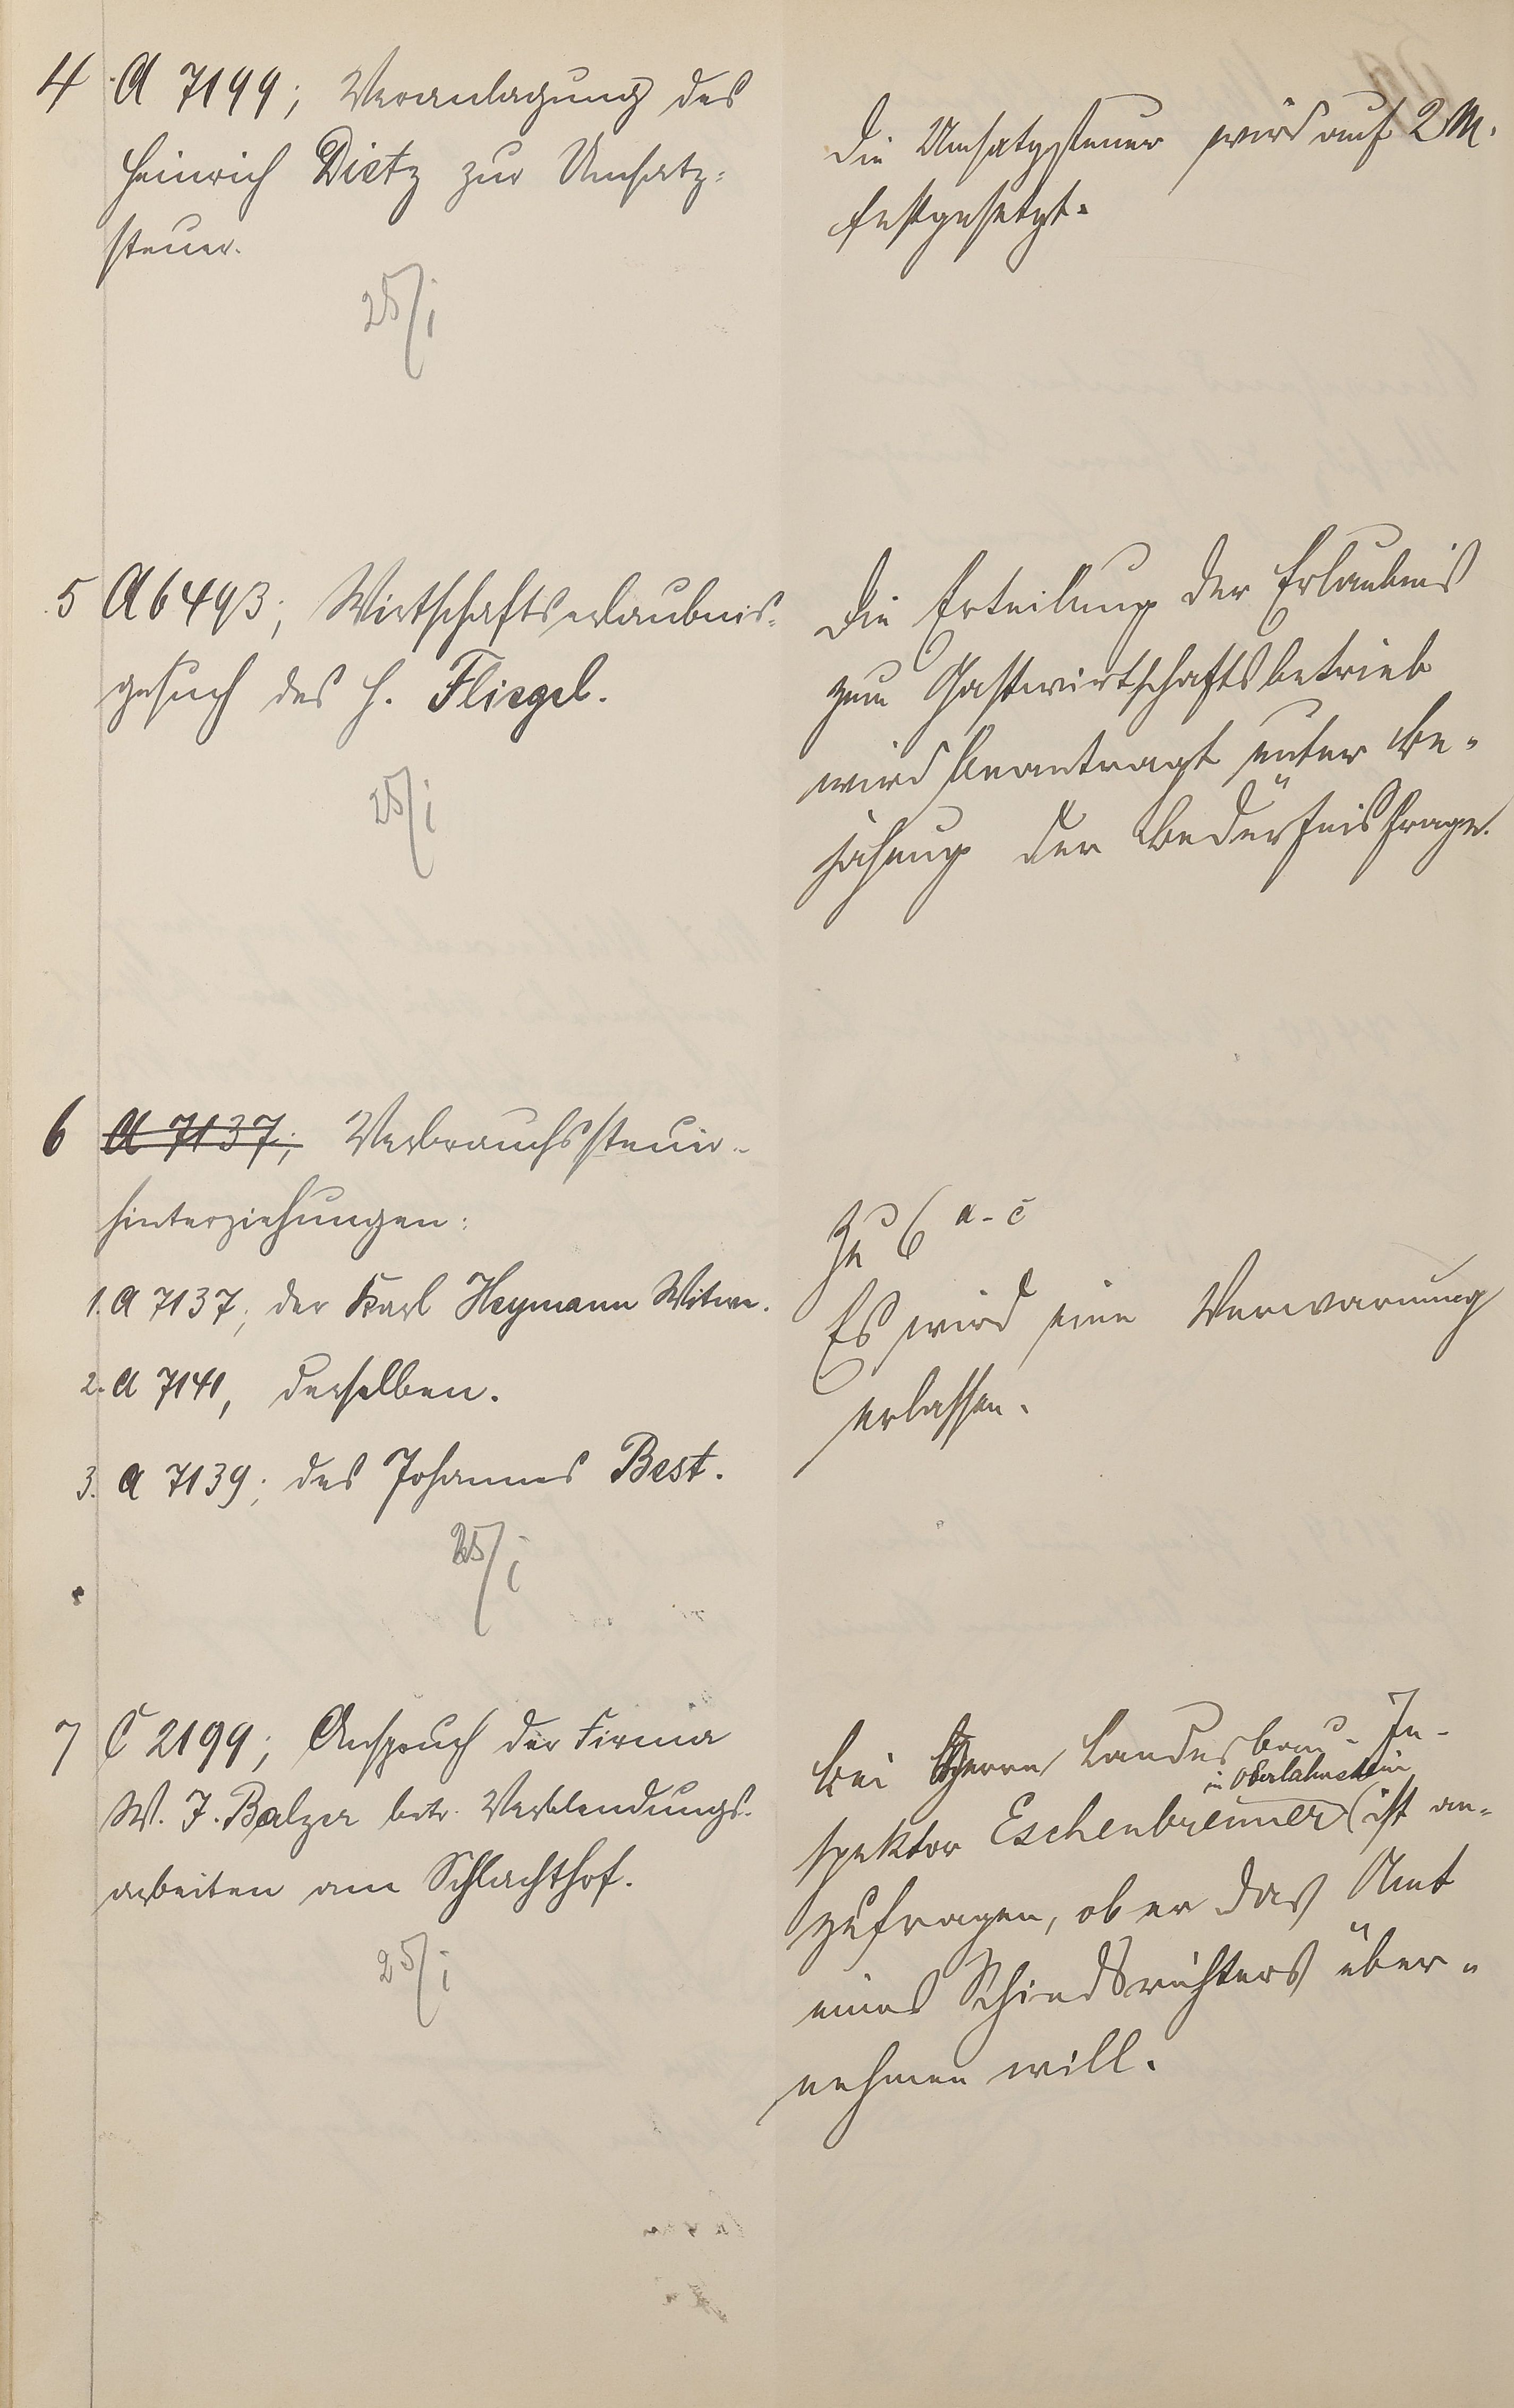 4 A 7199; Veranlagung des
Heinrich Dietz zur Umsatz-
steuer.
25/1
Die Umsatzsteuer wird auf 2 M.
festgesetzt.
5 A 6493; Wirtschaftserlaubnis-
gesuch des H. Fliegel.
25/1
Die Erteilung der Erlaubnis
zum Gastwirtschaftsbetrieb
wird beantragt unter Be-
jahung der Bedürfnisfrage.
6 A 7137; Verbrauchssteuer-
hinterziehungen:
1. A 7137; der Karl Heymann Witwe.
2. A 7141, derselben.
3. A 7139; des Johannes Best.
25/1
Zu 6 a-c
Es wird eine Verwarnung
erlassen.
7 C 2199; Anspruch der Firma
W. J. Balzer betr. Verblendungs-
arbeiten am Schlachthof.
25/1
Bei Herrn Landesbau-In-
spektor Eschenbrenner (in Oberlahnstein) ist an-
zufragen, ob er das Amt
eines Schiedsrichters über-
nehmen will.